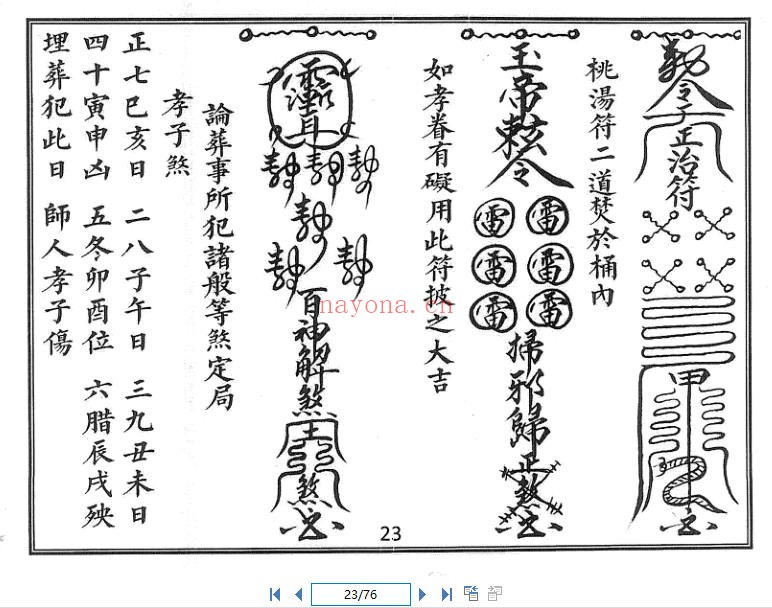 勅令子正治符
甲
桃湯符二道焚於桶內
玉帝敕令
雷雷
雷雷
雷雷
掃邪歸正煞
如孝眷有礙用此符披之大吉
百神解煞
煞
論葬事所犯諸般等煞定局
孝子煞
正七巳亥日 二八子午日 三九丑未日
四十寅申凶 五冬卯酉位 六腊辰戌殃
埋葬犯此日 師人孝子傷
23
nayona.cn
23/76